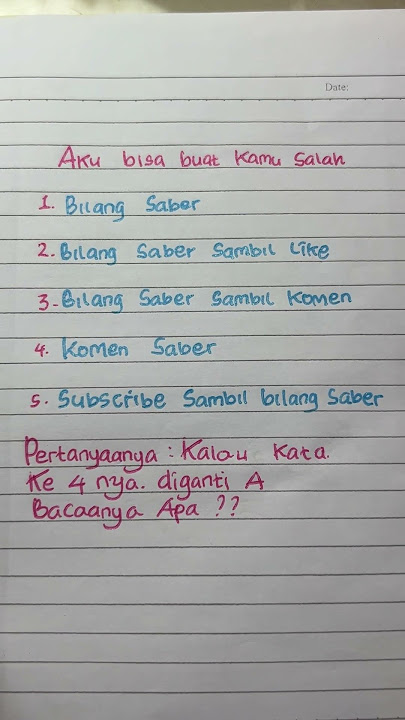 Date:
Aku bisa buat kamu salah
1. Bilang Saber
2. Bilang Saber Sambil Like
3. Bilang Saber Sambil Komen
4. Komen Saber
5. Subscribe Sambil bilang Saber
Pertanyaanya : Kalau Kata.
Ke 4 nya. diganti A
Bacaanya Apa ??